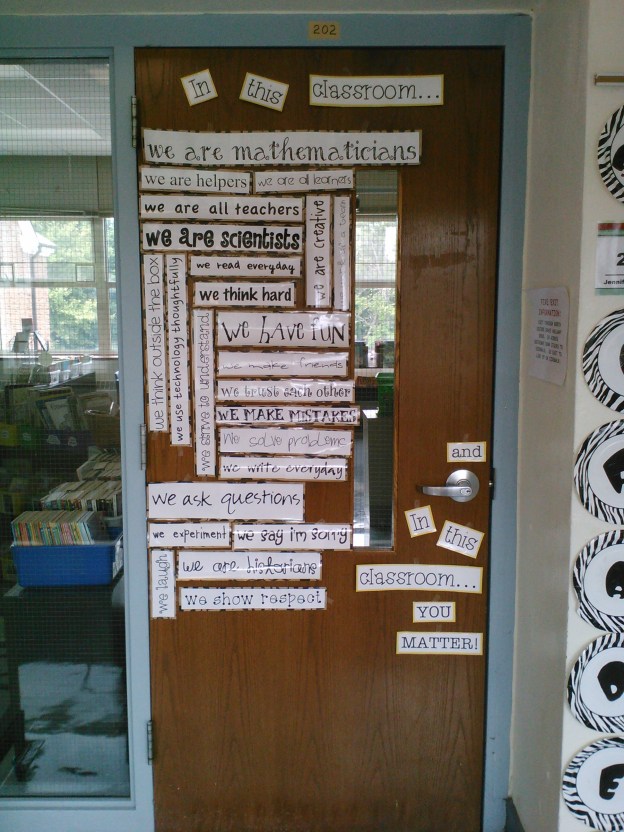 202
In this classroom...
we are mathematicians
we are helpers
we are all learners
we are all teachers
we are scientists
we are creative
we read everyday
we think hard
we think outside the box
we use technology thoughtfully
we strive to understand
we have fun
we make friends
we trust each other
WE MAKE MISTAKES
We solve problems
we write everyday
we ask questions
we experiment
we say i'm sorry
we laugh
we are historians
we show respect
and
In this
classroom...
YOU
MATTER!
2
D
E